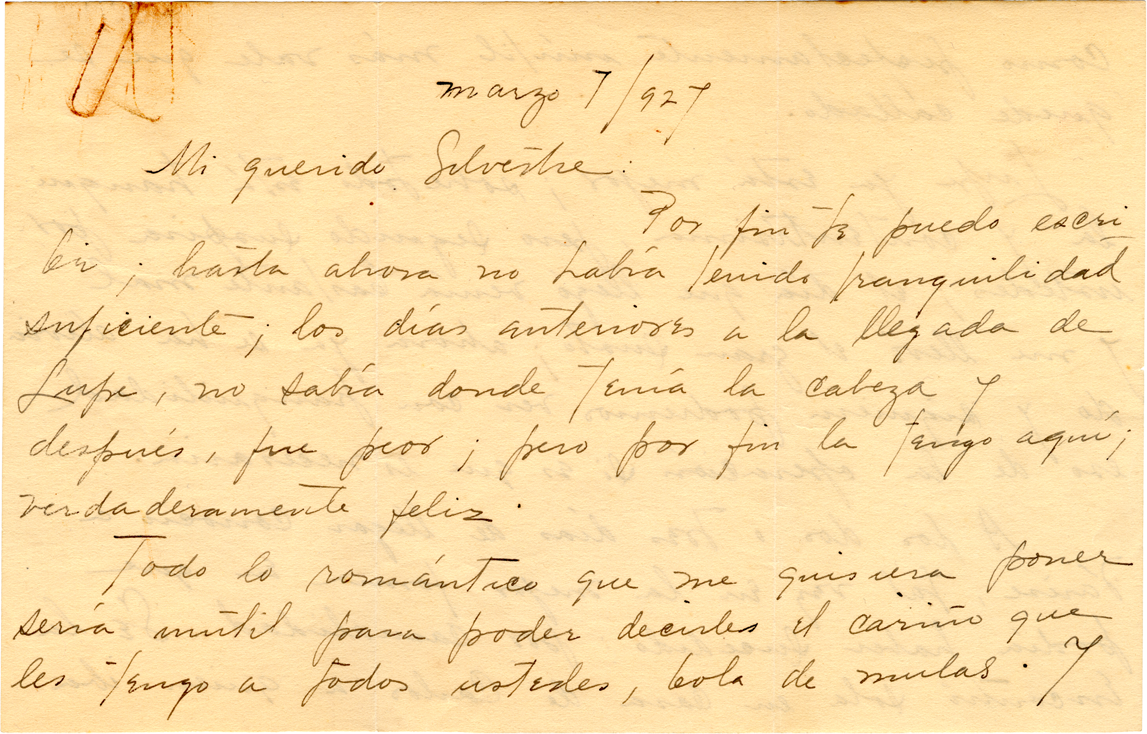 marzo 7/927
Mi querido Silvestre:
Por fin te puedo escri
bir; hasta ahora no había tenido tranquilidad
suficiente; los días anteriores a la llegada de
Lupe, no sabía donde tenía la cabeza y
después, fue peor; pero por fin la tengo aquí;
verdaderamente feliz.
Todo lo romántico que me quisiera poner
sería inútil para poder decirles el cariño que
les tengo a todos ustedes, bola de mulas. Y